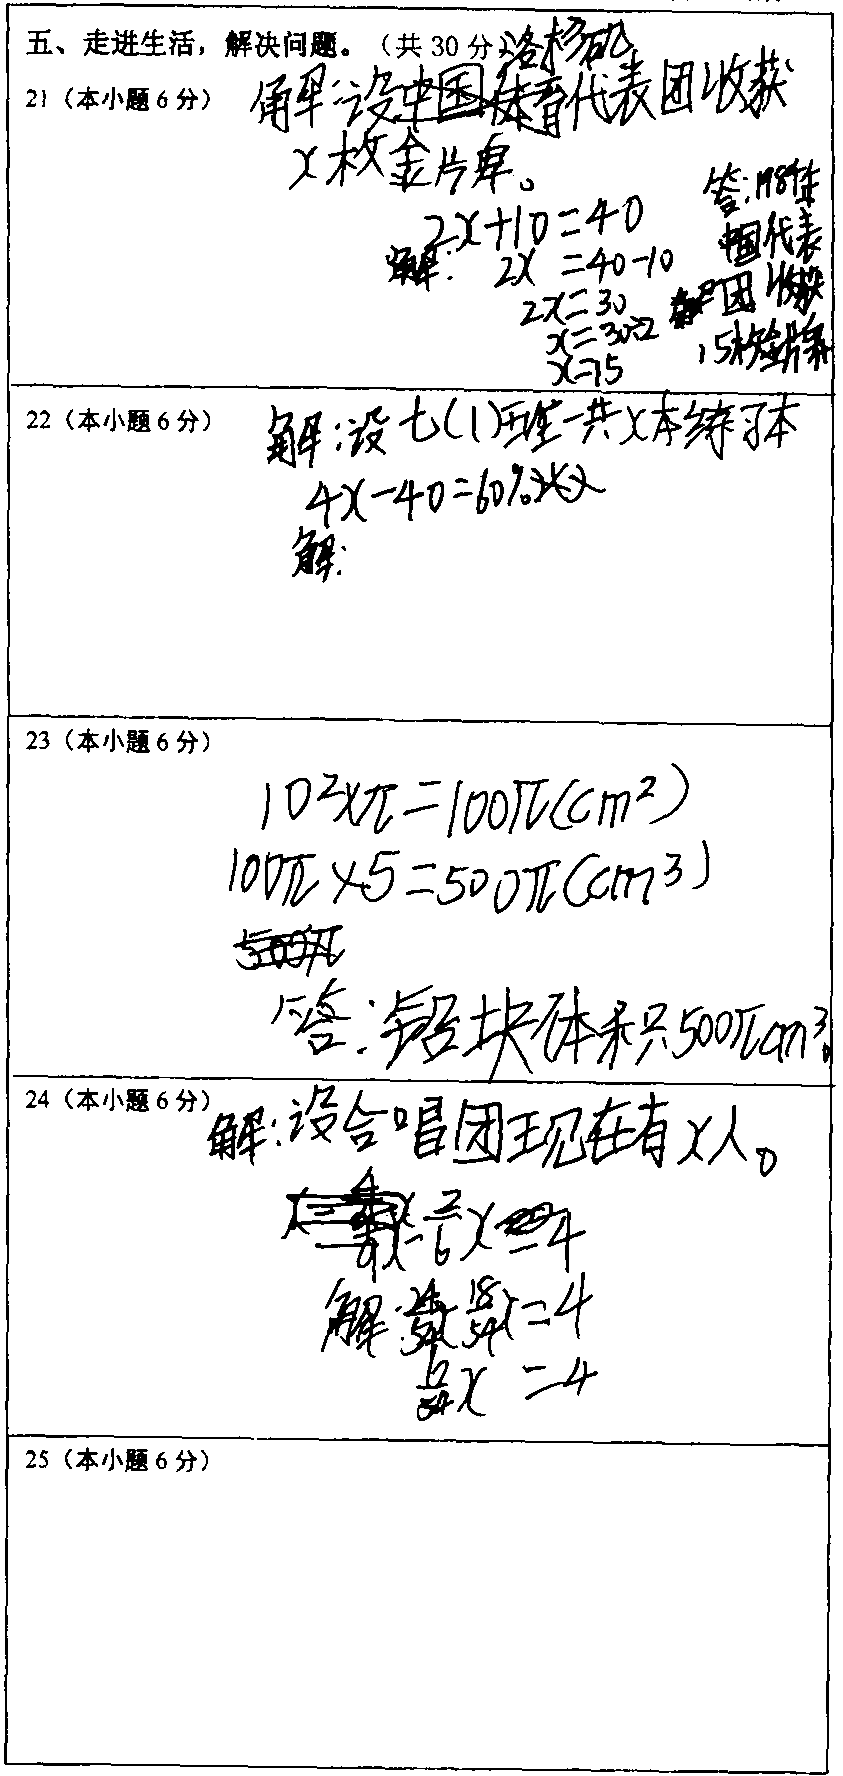 五、走进生活，解决问题。（共 30 分）洛杉矶
21（本小题 6 分） 解:设中国体育代表团收获
x枚金片牌。
2x+10=40
解: 2x =40-10
2x=30
x=30÷2
x=15
答:1984年
中国代表
团收获
15枚金片牌
22（本小题 6 分） 解:设七(1)班一共x本练习本
4x-40=60%
解:
23（本小题 6 分）
10²×π=100π(cm²)
100π×5=500π(cm³)
500π
答:铅块体积只500πcm³。
24（本小题 6 分） 解:设合唱团现在有x人。
x-2/6x=4
解: 18/54x=4
x =4
25（本小题 6 分）